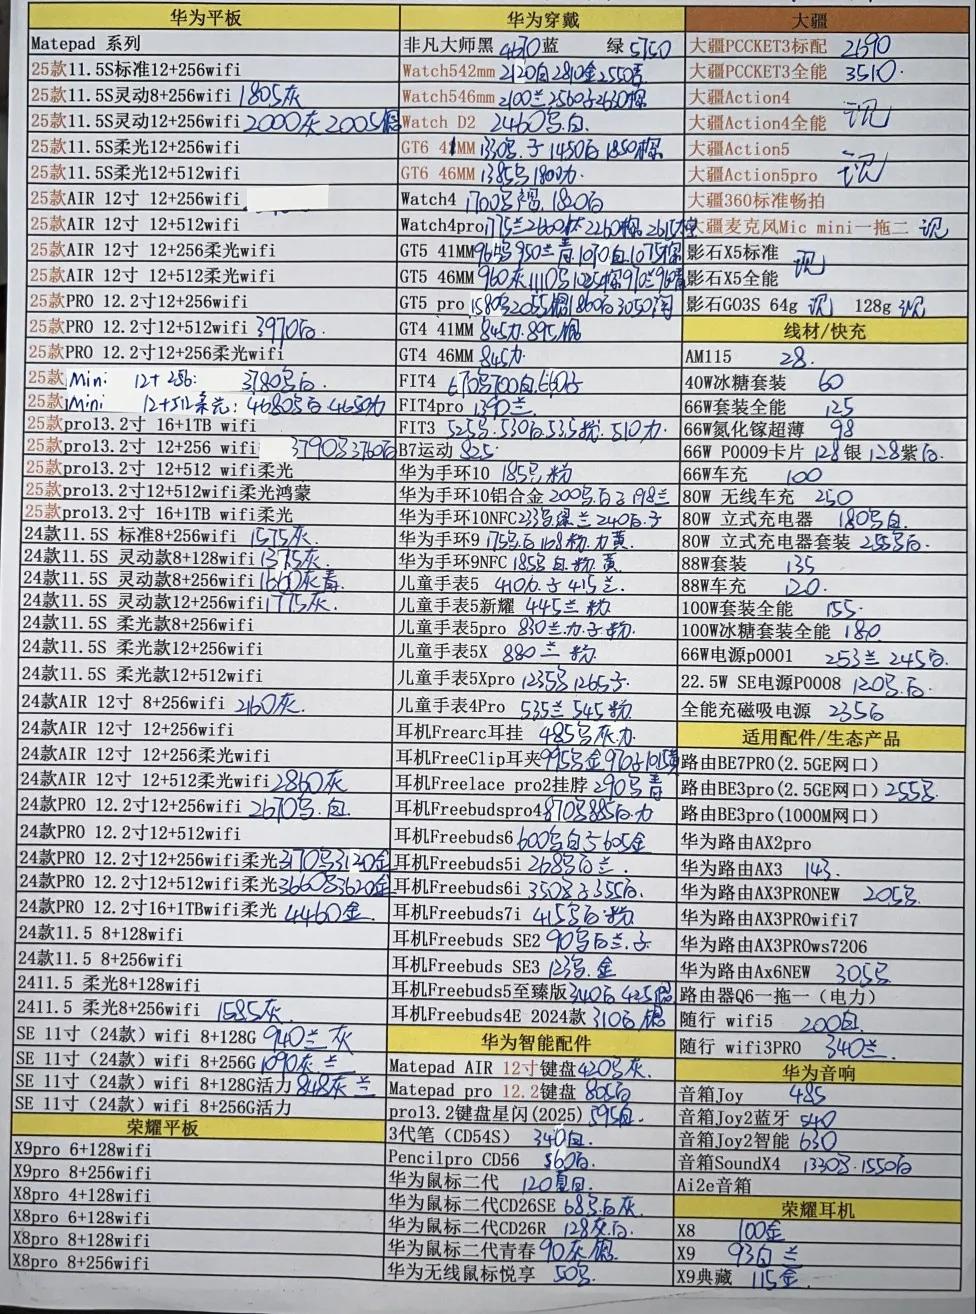 华为平板
Matepad 系列
25款11.5S标准12+256wifi
25款11.5S灵动8+256wifi 1805灰
25款11.5S灵动12+256wifi 2000灰 2005
25款11.5S柔光12+256wifi
25款11.5S柔光12+512wifi
25款AIR 12寸 12+256wifi
25款AIR 12寸 12+512wifi
25款AIR 12寸 12+256柔光wifi
25款AIR 12寸 12+512柔光wifi
25款PRO 12.2寸12+256wifi
25款PRO 12.2寸12+512wifi 3970白
25款PRO 12.2寸12+256柔光wifi
25款 Mini 12+256: 3780 白
25款 Mini 12+512柔光: 4680 白 4650
25款pro13.2寸 16+1TB wifi
25款pro13.2寸 12+256 wifi 3790 3760白
25款pro13.2寸 12+512 wifi柔光
25款pro13.2寸12+512wifi柔光鸿蒙
25款pro13.2寸 16+1TB wifi柔光
24款11.5S 标准8+256wifi 1575灰
24款11.5S 灵动款8+128wifi 1375灰
24款11.5S 灵动款8+256wifi 灰青
24款11.5S 灵动款12+256wifi 1775灰
24款11.5S 柔光款8+256wifi
24款11.5S 柔光款12+256wifi
24款11.5S 柔光款12+512wifi
24款AIR 12寸 8+256wifi 2160灰
24款AIR 12寸 12+256wifi
24款AIR 12寸 12+256柔光wifi
24款AIR 12寸 12+512柔光wifi 2860灰
24款PRO 12.2寸12+256wifi 2670 白
24款PRO 12.2寸12+512wifi
24款PRO 12.2寸12+256wifi柔光 3170 3120金
24款PRO 12.2寸12+512wifi柔光 3660 3620金
24款PRO 12.2寸16+1TBwifi柔光 4460金
24款11.5 8+128wifi
24款11.5 8+256wifi
2411.5 柔光8+128wifi
2411.5 柔光8+256wifi 1585灰
SE 11寸（24款）wifi 8+128G 940兰 灰
SE 11寸（24款）wifi 8+256G 1090灰 兰
SE 11寸（24款）wifi 8+128G活力 848灰 兰
SE 11寸（24款）wifi 8+256G活力
荣耀平板
X9pro 6+128wifi
X9pro 8+256wifi
X8pro 4+128wifi
X8pro 6+128wifi
X8pro 8+128wifi
X8pro 8+256wifi
华为穿戴
非凡大师黑 4670 蓝 绿 5750
Watch542mm 2120白 2810金 2550青
Watch546mm 2100兰 2560 2630棕
Watch D2 2460 白
GT6 41MM 1330 子 1450白 1850棕
GT6 46MM 1385 1800
Watch4 1700 1820白
Watch4pro 1775兰 2260棕
GT5 41MM 1070白 1075棕
GT5 46MM 960灰 1110
GT5 pro 1580 1860白 3050
GT4 41MM 845 895棕
GT4 46MM 845
FIT4 670 700白 660子
FIT4pro 1390兰
FIT3 525 530白 535粉 510
B7运动 825
华为手环10 185 粉
华为手环10铝合金 200 白子 198兰
华为手环10NFC 235 兰 240白子
华为手环9 175 白 168粉 黄
华为手环9NFC 185 白 粉 黄
儿童手表5 410 子 415兰
儿童手表5新耀 445兰 粉
儿童手表5pro 830兰 子 粉
儿童手表5X 880兰 粉
儿童手表5Xpro 1235 1265子
儿童手表4Pro 535兰 545粉
耳机Frearc耳挂 485 灰
耳机FreeClip耳夹 995 金 970子 1015
耳机Freelace pro2挂脖 290 青
耳机Freebudspro4 870 885白
耳机Freebuds6 600 白 605金
耳机Freebuds5i 268 白兰
耳机Freebuds6i 350 子 355白
耳机Freebuds7i 415 白 粉
耳机Freebuds SE2 90 白兰子
耳机Freebuds SE3 123 金
耳机Freebuds5至臻版 340白 425
耳机Freebuds4E 2024款 310白
华为智能配件
Matepad AIR 12寸键盘 420 灰
Matepad pro 12.2键盘 805白
pro13.2键盘星闪(2025) 595白
3代笔（CD54S） 340白
Pencilpro CD56 560白
华为鼠标二代 120 白
华为鼠标二代CD26SE 68 白灰
华为鼠标二代CD26R 128灰白
华为鼠标二代青春 90灰
华为无线鼠标悦享 50
大疆
大疆PCCKET3标配 2690
大疆PCCKET3全能 3510
大疆Action4
大疆Action4全能 讯
大疆Action5
大疆Action5pro 讯
大疆360标准畅拍
大疆麦克风Mic mini一拖二 讯
影石X5标准
影石X5全能 讯
影石GO3S 64g 讯 128g 讯
线材/快充
AM115 28
40W冰糖套装 60
66W套装全能 125
66W氮化镓超薄 98
66W P0009卡片 128银 128紫白
66W车充 100
80W 无线车充 250
80W 立式充电器 180 白
80W 立式充电器套装 255 白
88W套装 135
88W车充 120
100W套装全能 155
100W冰糖套装全能 180
66W电源p0001 253兰 245白
22.5W SE电源P0008 120 白
全能充磁吸电源 235白
适用配件/生态产品
路由BE7PRO(2.5GE网口）
路由BE3pro(2.5GE网口) 255
路由BE3pro(1000M网口）
华为路由AX2pro
华为路由AX3 143
华为路由AX3PRONEW 205
华为路由AX3PROwifi7
华为路由AX3PROws7206
华为路由Ax6NEW 305
路由器Q6一拖一（电力）
随行 wifi5 200白
随行 wifi3PRO 340兰
华为音响
音箱Joy 485
音箱Joy2蓝牙 540
音箱Joy2智能 630
音箱SoundX4 1330 1550白
Ai2e音箱
荣耀耳机
X8 100金
X9 93白 兰
X9典藏 115金